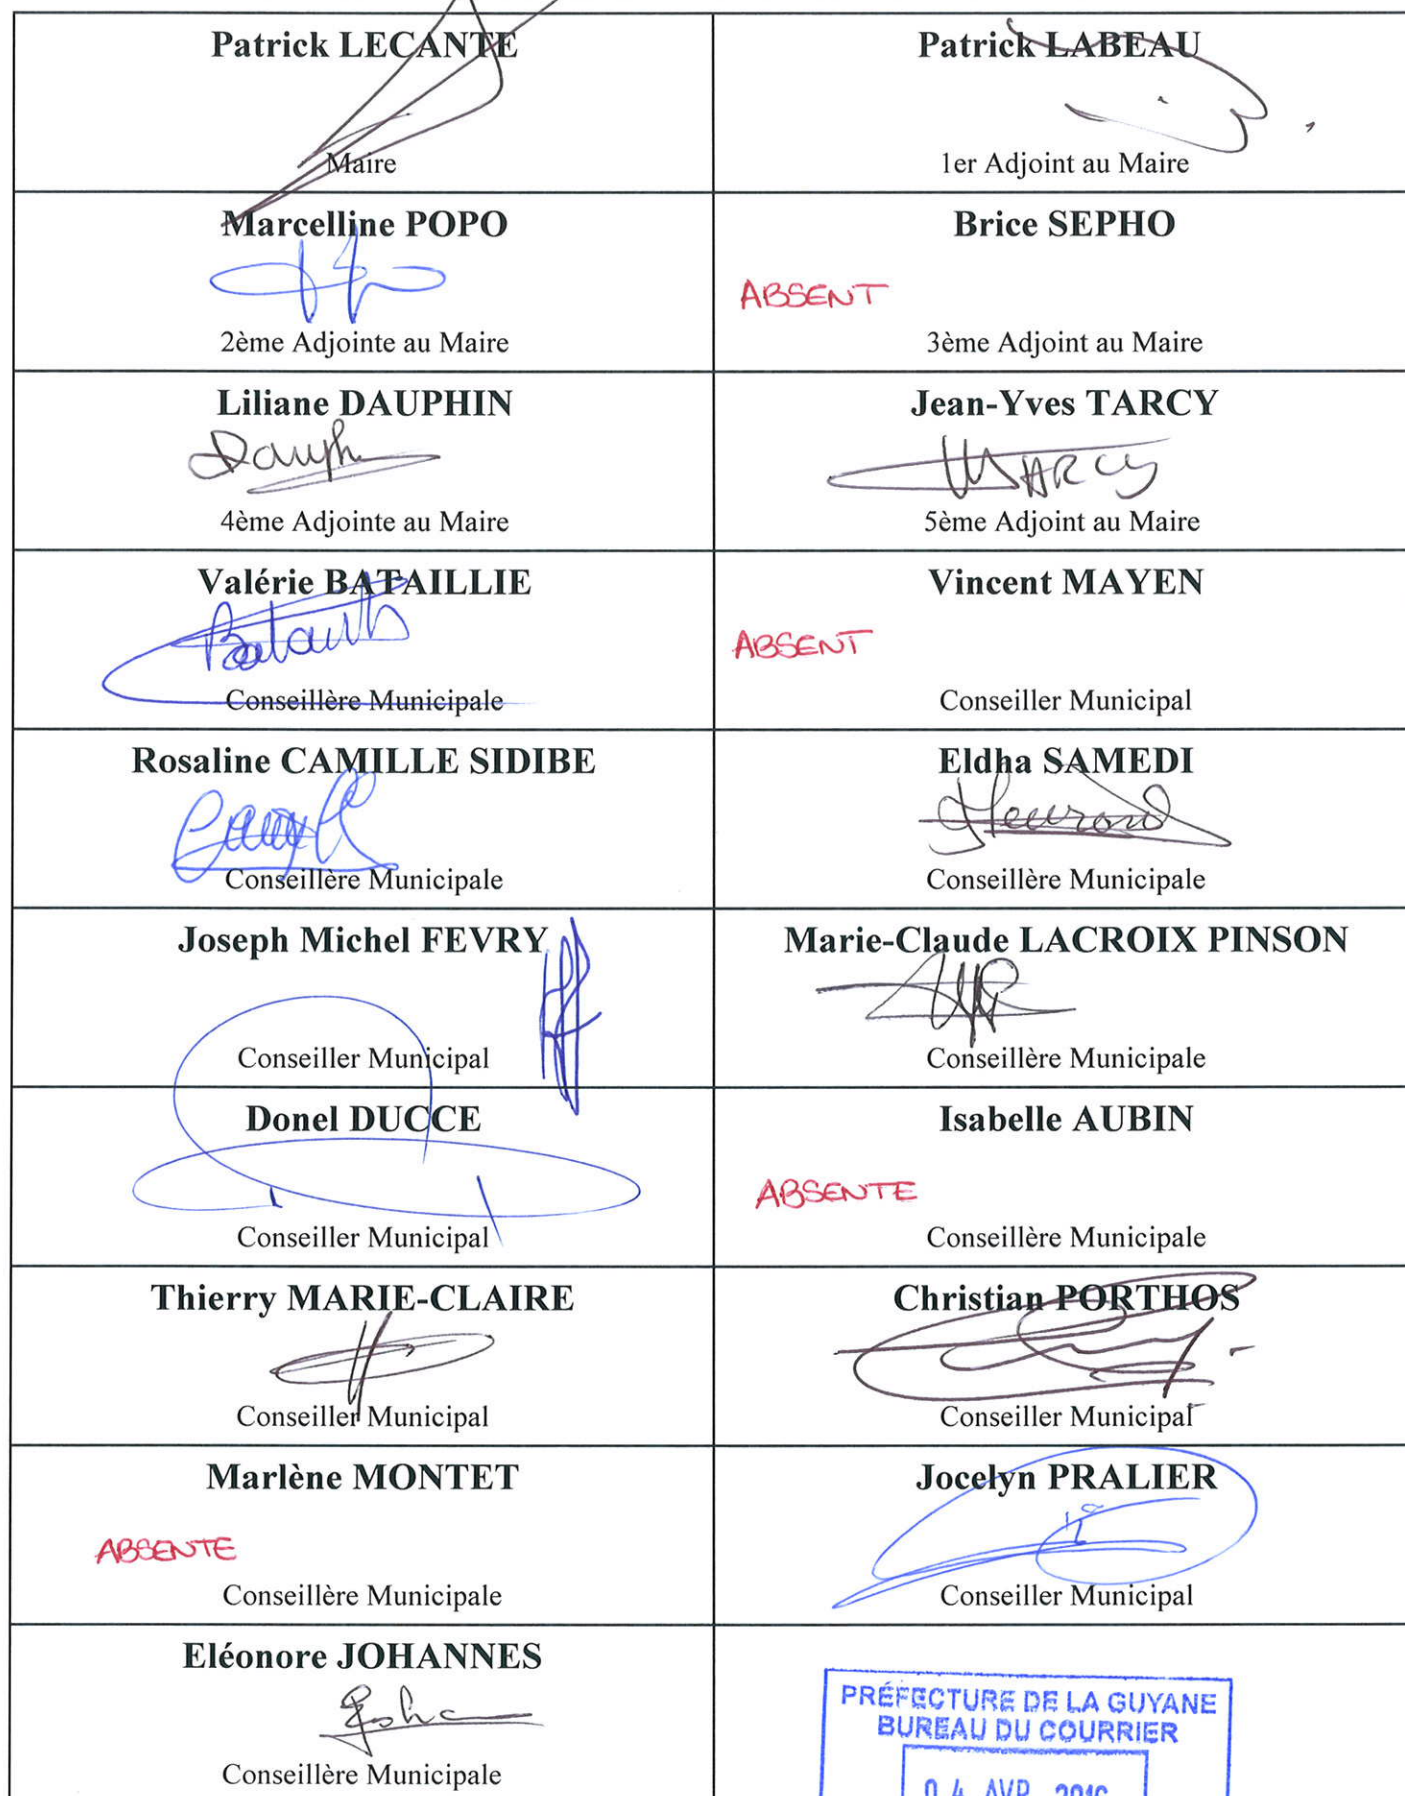 Patrick LECANTE
Maire
Patrick LABEAU
1er Adjoint au Maire
Marcelline POPO
2ème Adjointe au Maire
Brice SEPHO
ABSENT
3ème Adjoint au Maire
Liliane DAUPHIN
4ème Adjointe au Maire
Jean-Yves TARCY
TARCY
5ème Adjoint au Maire
Valérie BATAILLIE
Conseillère Municipale
Vincent MAYEN
ABSENT
Conseiller Municipal
Rosaline CAMILLE SIDIBE
Conseillère Municipale
Eldha SAMEDI
Conseillère Municipale
Joseph Michel FEVRY
Conseiller Municipal
Marie-Claude LACROIX PINSON
Conseillère Municipale
Donel DUCCE
Conseiller Municipal
Isabelle AUBIN
ABSENTE
Conseillère Municipale
Thierry MARIE-CLAIRE
Conseiller Municipal
Christian PORTHOS
Conseiller Municipal
Marlène MONTET
ABSENTE
Conseillère Municipale
Jocelyn PRALIER
Conseiller Municipal
Eléonore JOHANNES
Conseillère Municipale
PRÉFECTURE DE LA GUYANE
BUREAU DU COURRIER
04 AVR. 2016